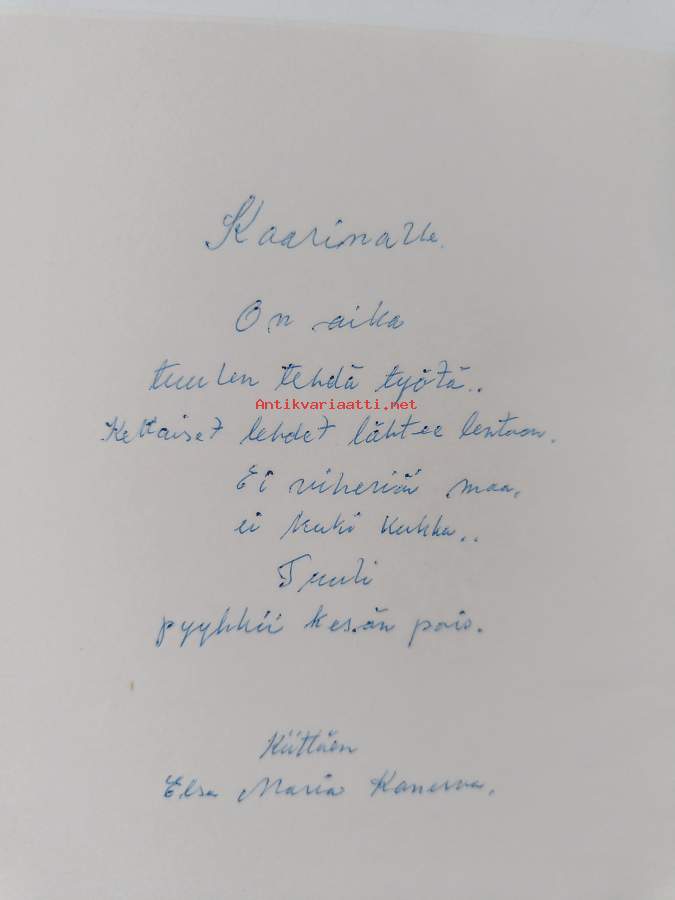 Kaarinalle.
On aika
tuulen tehdä työtä..
Antikvariaatti.net
Keltaiset lehdet lähtee lentoon.
Ei viheriöi maa,
ei kuki kukka..
Tuuli
pyyhkii kesän pois.
Kiittäen
Elsa Maria Kanerva.